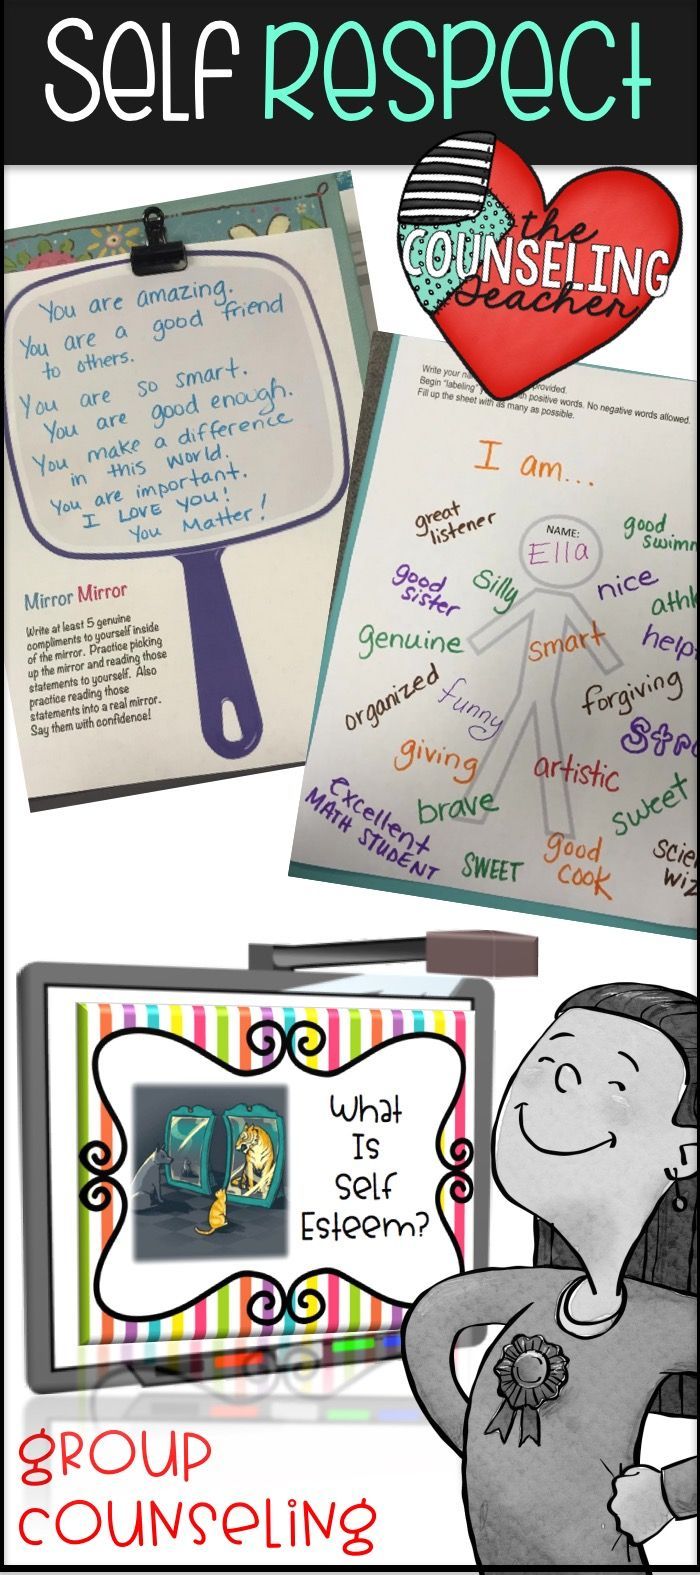 Self Respect
the
COUNSELING
teacher
You are amazing.
You are a good friend
to others.
You are so smart.
You are good enough.
You make a difference
in this world.
You are important.
I LOVE YOU!
You Matter!
Mirror Mirror
Write at least 5 genuine
compliments to yourself inside
of the mirror. Practice picking
up the mirror and reading those
statements to yourself. Also
practice reading those
statements into a real mirror.
Say them with confidence!
Write your provided.
Begin "labeling" positive words. No negative words allowed.
Fill up the sheet with as many as possible.
I am...
great
listener
NAME:
Ella
good
swimm
good
sister
silly
nice
athl
genuine
smart
help
organized
funny
forgiving
Str
giving
artistic
sweet
brave
excellent
MATH STUDENT
SWEET
good
cook
scie
wiz
What
Is
Self
Esteem?
group
counseling